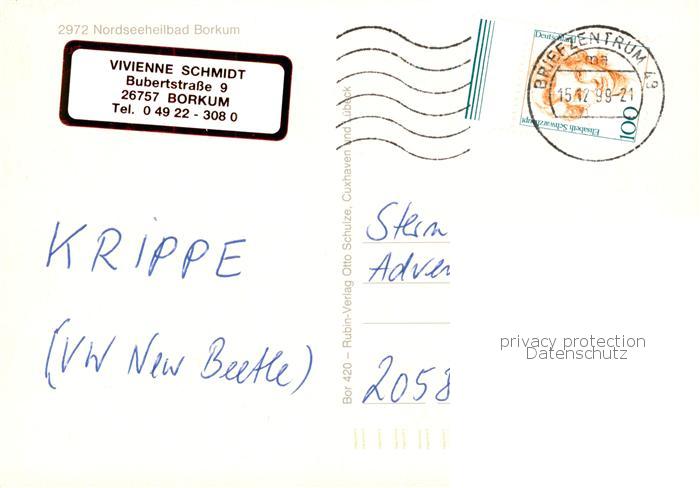 2972 Nordseeheilbad Borkum
VIVIENNE SCHMIDT
Bubertstraße 9
26757 BORKUM
Tel. 0 49 22 - 308 0
KRIPPE
(VW New Beetle)
Bor 420 – Rubin-Verlag Otto Schulze, Cuxhaven und Lübeck
Deutschland
100
Elisabeth Schwarzhaupt
BRIEFZENTRUM
15.12.99-21
Stern
Adven
2058
privacy protection
Datenschutz